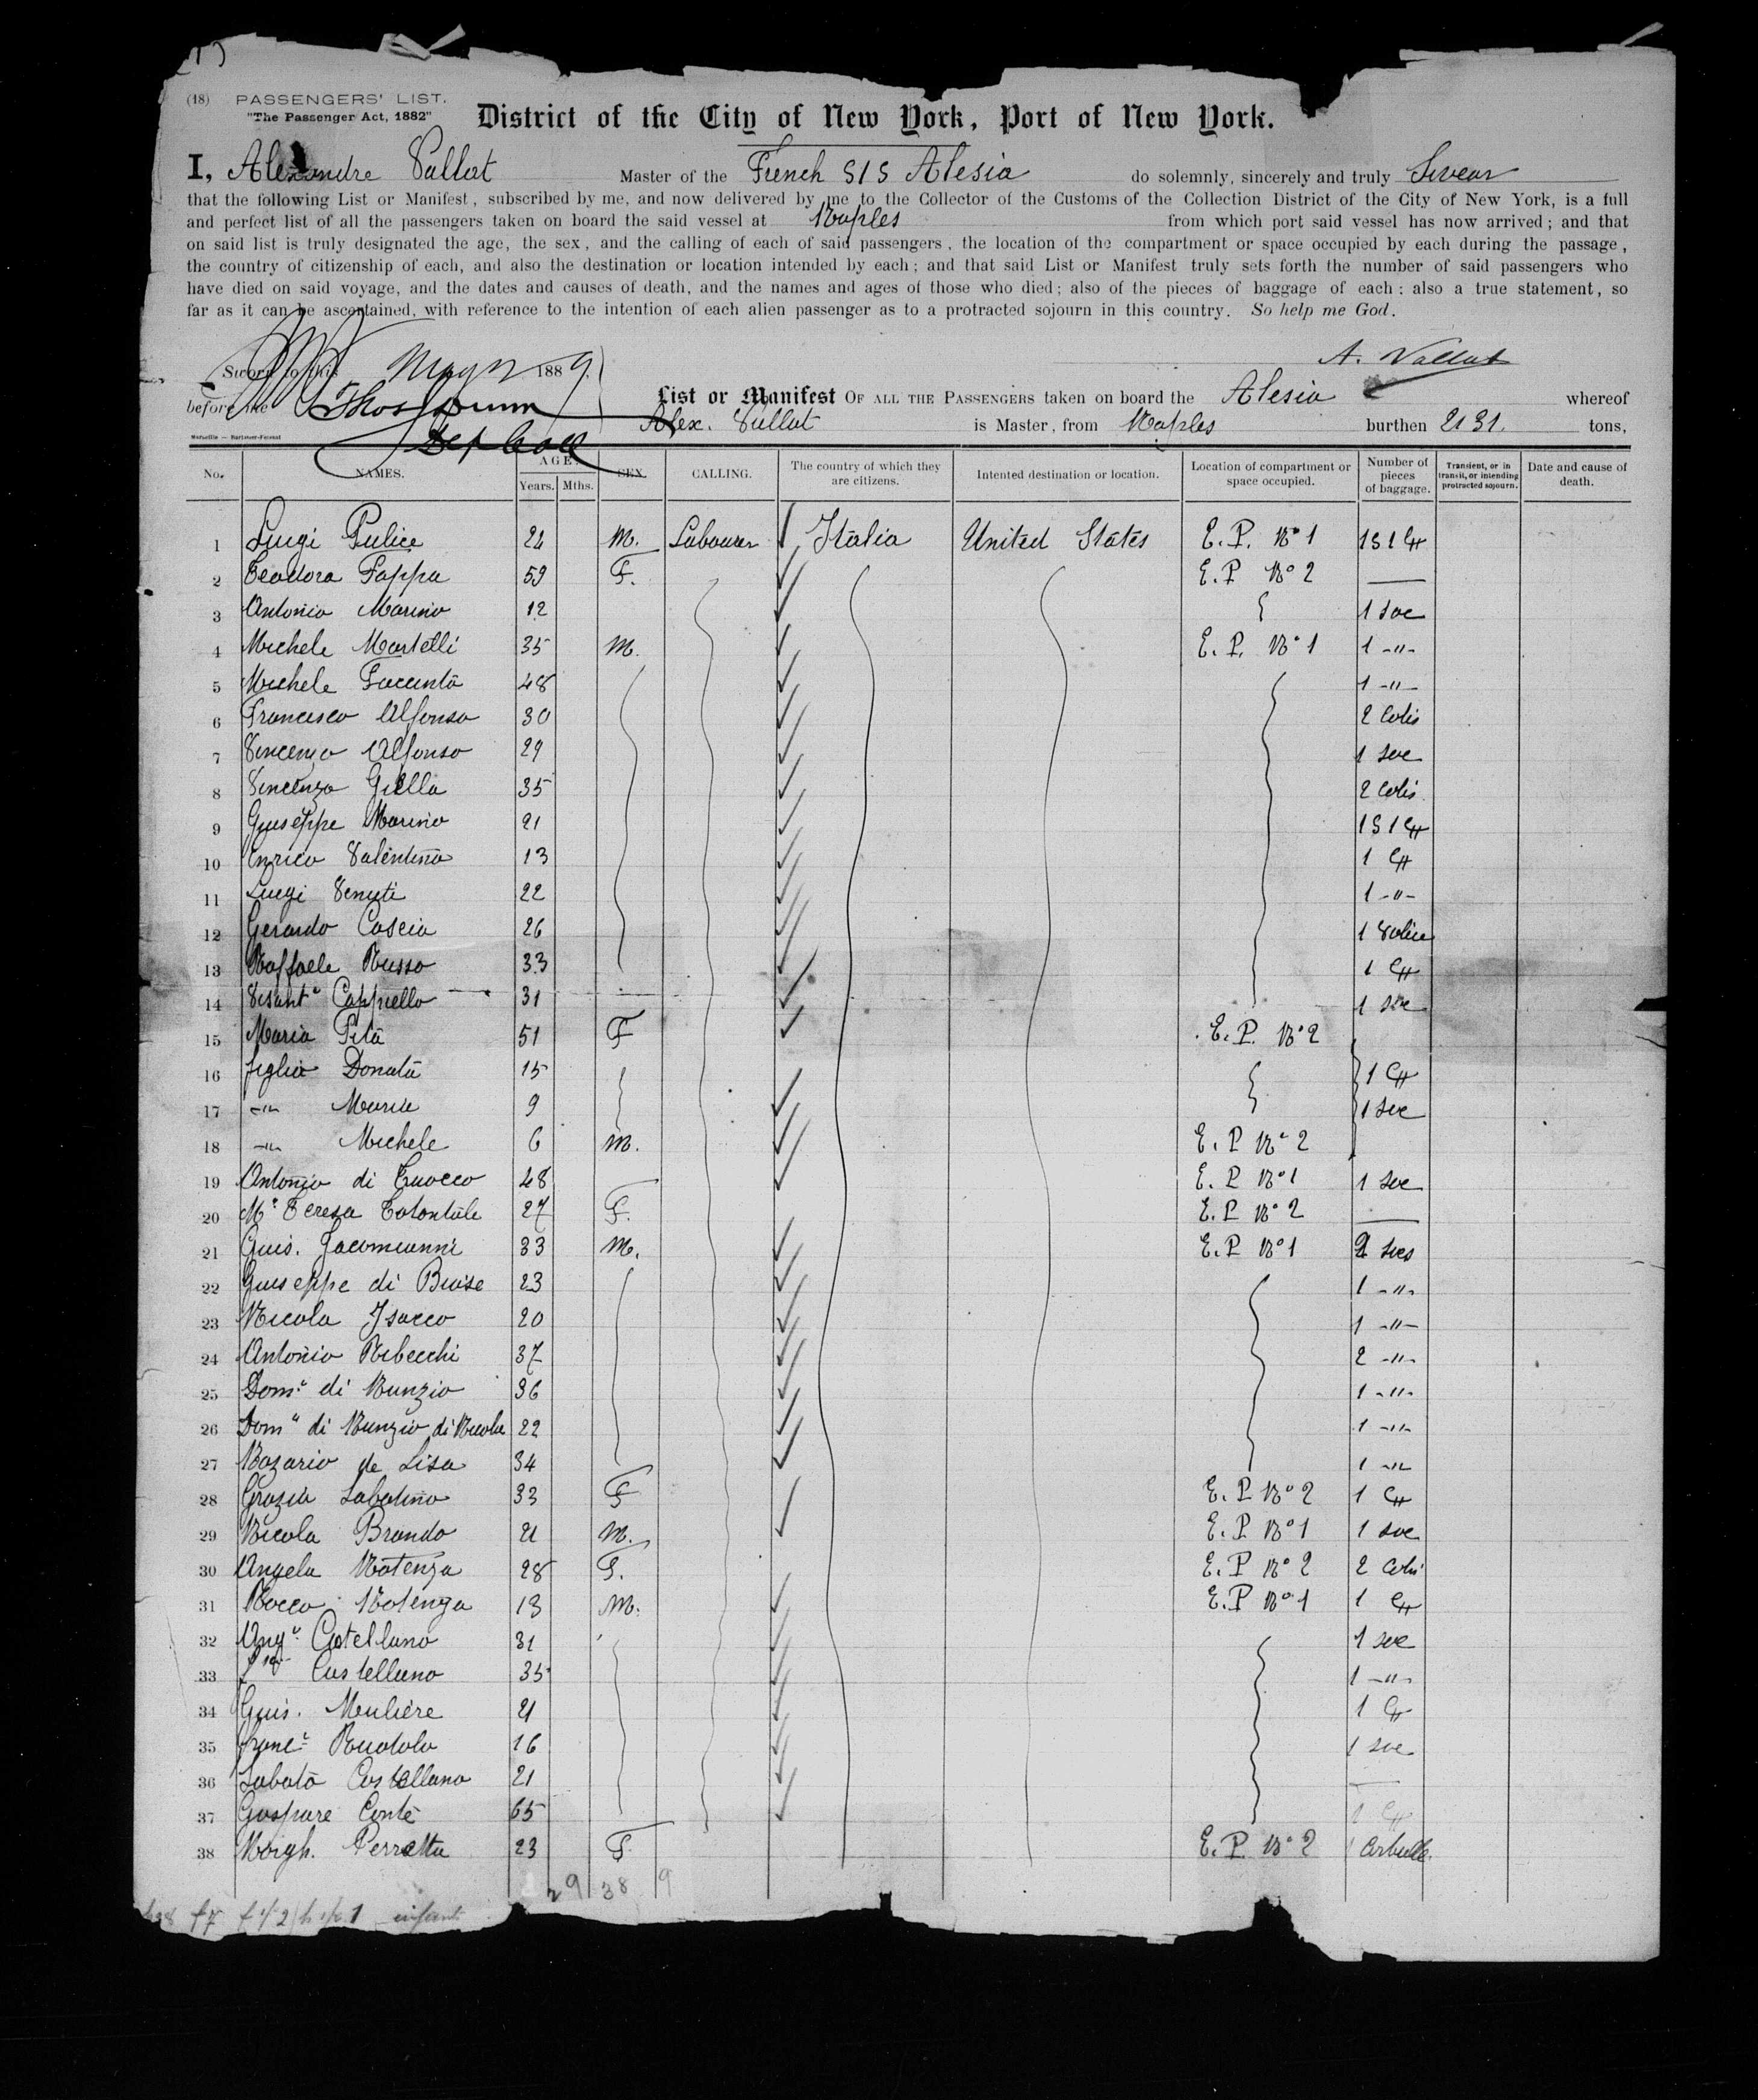 (18) PASSENGERS' LIST.
"The Passenger Act, 1882"
District of the City of New York, Port of New York.
I, Alexandre Vallat Master of the French S/S Alesia do solemnly, sincerely and truly Swear
that the following List or Manifest, subscribed by me, and now delivered by me to the Collector of the Customs of the Collection District of the City of New York, is a full
and perfect list of all the passengers taken on board the said vessel at Naples from which port said vessel has now arrived; and that
on said list is truly designated the age, the sex, and the calling of each of said passengers, the location of the compartment or space occupied by each during the passage,
the country of citizenship of each, and also the destination or location intended by each; and that said List or Manifest truly sets forth the number of said passengers who
have died on said voyage, and the dates and causes of death, and the names and ages of those who died; also of the pieces of baggage of each: also a true statement, so
far as it can be ascertained, with reference to the intention of each alien passenger as to a protracted sojourn in this country. So help me God.
A. Vallat
Sworn to this May 1889
before me Thos Dunn
Dep Coll
List or Manifest OF ALL THE PASSENGERS taken on board the Alesia whereof
Alex. Vallat is Master, from Naples burthen 2131 tons,
No. NAMES. AGE. Years. Mths. SEX. CALLING. The country of which they are citizens. Intented destination or location. Location of compartment or space occupied. Number of pieces of baggage. Transient, or in transit, or intending protracted sojourn. Date and cause of death.
1 Luigi Pulice 24 M. Labourer Italia United States E. P. No 1 1 S 1 Cn
2 Teodora Fappa 59 F. E. P No 2 —
3 Antonia Marino 12 1 sac
4 Michele Martelli 35 M. E. P. No 1 1 -"-
5 Michele Faccinta 48 1 -"-
6 Francesco Alfonso 30 2 Colis
7 Vincenzo Alfonso 29 1 sac
8 Vincenzo Giella 35 2 Colis
9 Giuseppe Marino 21 1 S 1 Cn
10 Enrico Valentino 13 1 Cn
11 Luigi Venuti 22 1 -"-
12 Gerardo Cascia 26 1 Valise
13 Raffaele Russo 33 1 Cn
14 Cappiello 31 1 sac
15 Maria Pita 51 F E. P. No 2
16 figlia Donata 15 1 Cn
17 -"- Maria 9 1 sac
18 -"- Michele 6 M. E. P No 2
19 Antonio di Cuocco 48 E. P No 1 1 sac
20 Ma Teresa 27 F. E. P No 2 —
21 Guis. Jacomianni 33 M. E. P No 1 2 sacs
22 Giuseppe di Biase 23 1 -"-
23 Nicola Isacco 20 1 -"-
24 Antonio Rebecchi 37 2 -"-
25 Domo di Nunzio 36 1 -"-
26 Domo di Nunzio di Nicola 22 1 -"-
27 Nazario de Lisa 34 1 -"-
28 Grazia Sabatino 33 F E. P No 2 1 Cn
29 Nicola Brando 21 M. E. P. No 1 1 sac
30 Angela Potenza 28 F. E. P No 2 2 Colis
31 Rocco Potenza 13 M. E. P No 1 1 Cn
32 Ango Catellano 31 1 sac
33 Castellano 35 1 -"-
34 Guis. Meuliere 21 1 Cn
35 Franco Ruotolo 16 1 sac
36 Sabato Castellano 21 —
37 Gaspare Conte 65 1 Cn
38 Perretta 23 F E. P. No 2 1
29 38 9
infant